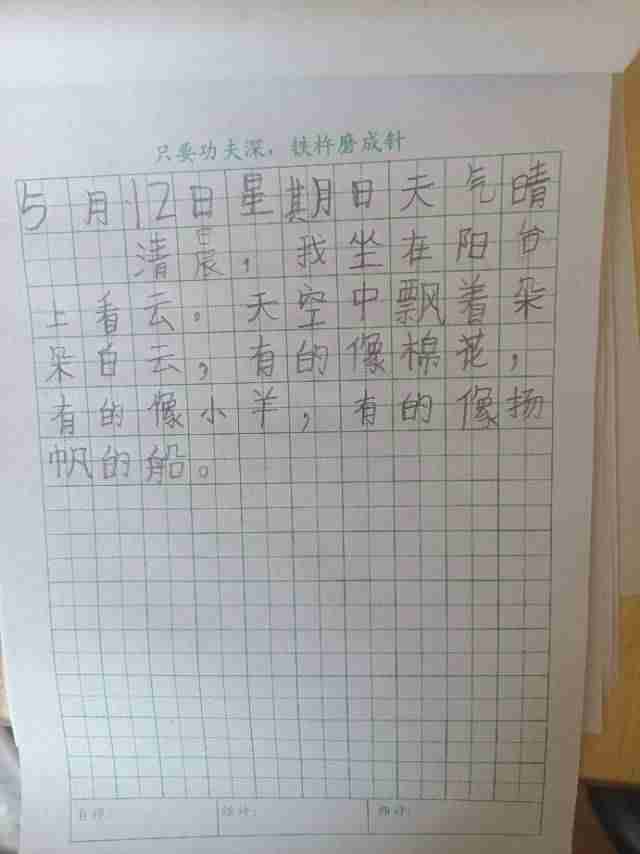 只要功夫深，铁杵磨成针
5月12日星期日天气晴
清晨，我坐在阳台
上看云。天空中飘着朵
朵白云，有的像棉花，
有的像小羊，有的像扬
帆的船。
自评：
师评：